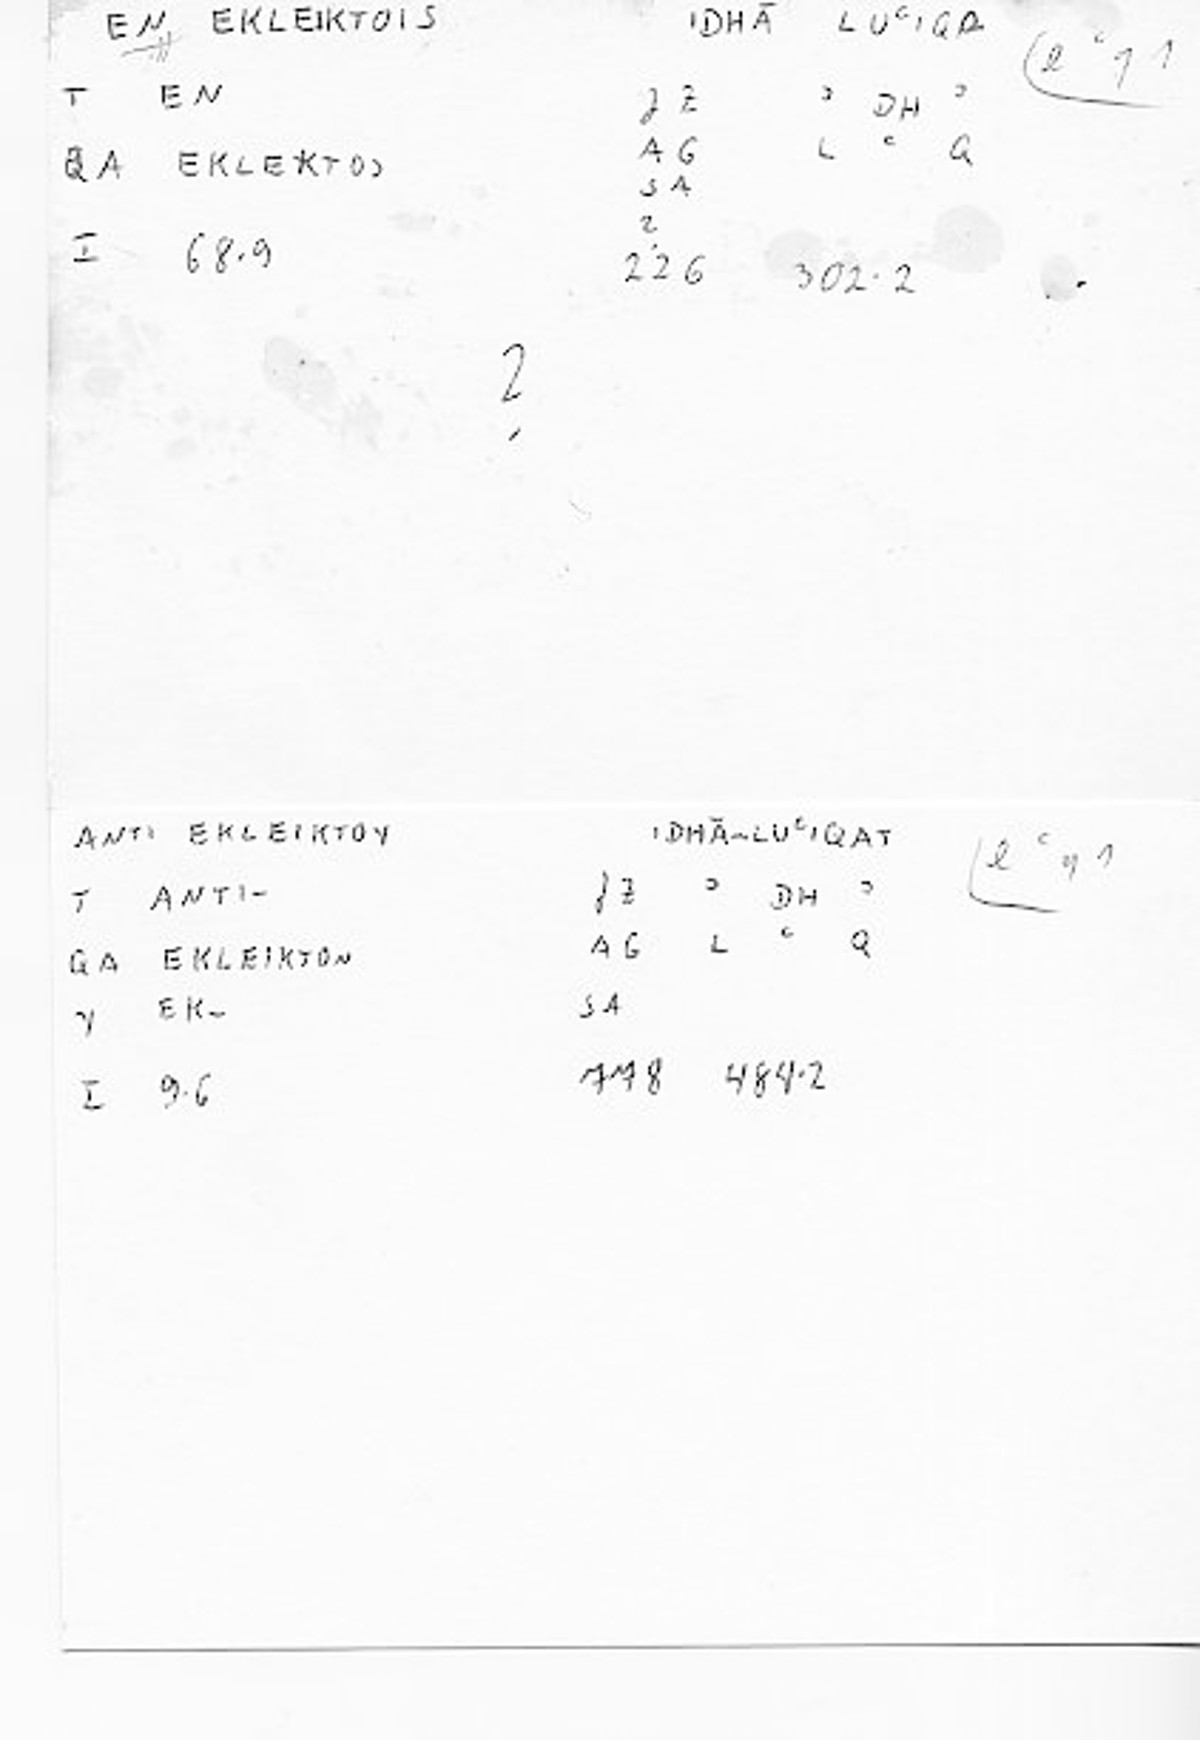 EN EKLEIKTOIS IDHĀ LUᶜIQA (l ᶜ q 1
T EN JZ ʾ DH ʾ
QA EKLEKTOS AG L ᶜ Q
SA
?
I 68.9 226 302.2
?
ANTI EKLEIKTOY IDHĀ-LUᶜIQAT l ᶜ q 1
T ANTI- JZ ʾ DH ʾ
QA EKLEIKTON AG L ᶜ Q
Y EK- SA
I 9.6 778 484.2